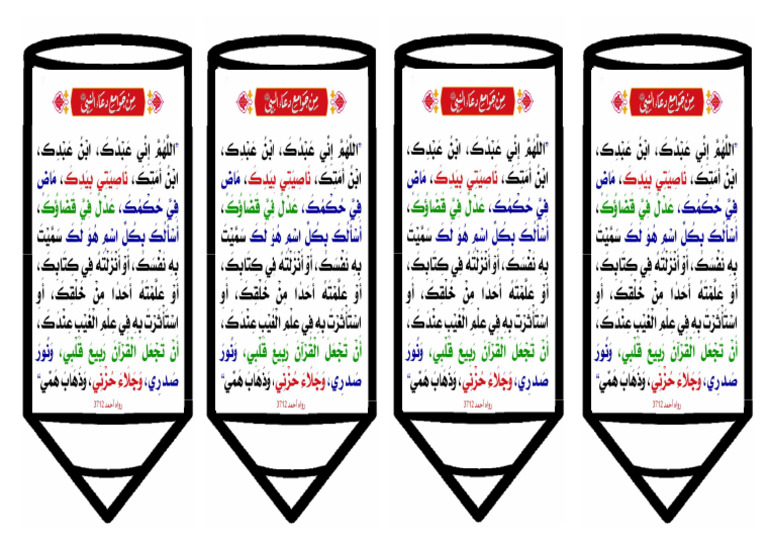 من جوامع دعاء النبي ﷺ
"اللَّهُمَّ إِنِّي عَبْدُكَ، ابْنُ عَبْدِكَ،
ابْنُ أَمَتِكَ، نَاصِيَتِي بِيَدِكَ، مَاضٍ
فِيَّ حُكْمُكَ، عَدْلٌ فِيَّ قَضَاؤُكَ،
أَسْأَلُكَ بِكُلِّ اسْمٍ هُوَ لَكَ سَمَّيْتَ
بِهِ نَفْسَكَ، أَوْ أَنْزَلْتَهُ فِي كِتَابِكَ،
أَوْ عَلَّمْتَهُ أَحَدًا مِنْ خَلْقِكَ، أَوِ
اسْتَأْثَرْتَ بِهِ فِي عِلْمِ الْغَيْبِ عِنْدَكَ،
أَنْ تَجْعَلَ الْقُرْآنَ رَبِيعَ قَلْبِي، وَنُورَ
صَدْرِي، وَجَلَاءَ حُزْنِي، وَذَهَابَ هَمِّي"
رواه أحمد 3712
من جوامع دعاء النبي ﷺ
"اللَّهُمَّ إِنِّي عَبْدُكَ، ابْنُ عَبْدِكَ،
ابْنُ أَمَتِكَ، نَاصِيَتِي بِيَدِكَ، مَاضٍ
فِيَّ حُكْمُكَ، عَدْلٌ فِيَّ قَضَاؤُكَ،
أَسْأَلُكَ بِكُلِّ اسْمٍ هُوَ لَكَ سَمَّيْتَ
بِهِ نَفْسَكَ، أَوْ أَنْزَلْتَهُ فِي كِتَابِكَ،
أَوْ عَلَّمْتَهُ أَحَدًا مِنْ خَلْقِكَ، أَوِ
اسْتَأْثَرْتَ بِهِ فِي عِلْمِ الْغَيْبِ عِنْدَكَ،
أَنْ تَجْعَلَ الْقُرْآنَ رَبِيعَ قَلْبِي، وَنُورَ
صَدْرِي، وَجَلَاءَ حُزْنِي، وَذَهَابَ هَمِّي"
رواه أحمد 3712
من جوامع دعاء النبي ﷺ
"اللَّهُمَّ إِنِّي عَبْدُكَ، ابْنُ عَبْدِكَ،
ابْنُ أَمَتِكَ، نَاصِيَتِي بِيَدِكَ، مَاضٍ
فِيَّ حُكْمُكَ، عَدْلٌ فِيَّ قَضَاؤُكَ،
أَسْأَلُكَ بِكُلِّ اسْمٍ هُوَ لَكَ سَمَّيْتَ
بِهِ نَفْسَكَ، أَوْ أَنْزَلْتَهُ فِي كِتَابِكَ،
أَوْ عَلَّمْتَهُ أَحَدًا مِنْ خَلْقِكَ، أَوِ
اسْتَأْثَرْتَ بِهِ فِي عِلْمِ الْغَيْبِ عِنْدَكَ،
أَنْ تَجْعَلَ الْقُرْآنَ رَبِيعَ قَلْبِي، وَنُورَ
صَدْرِي، وَجَلَاءَ حُزْنِي، وَذَهَابَ هَمِّي"
رواه أحمد 3712
من جوامع دعاء النبي ﷺ
"اللَّهُمَّ إِنِّي عَبْدُكَ، ابْنُ عَبْدِكَ،
ابْنُ أَمَتِكَ، نَاصِيَتِي بِيَدِكَ، مَاضٍ
فِيَّ حُكْمُكَ، عَدْلٌ فِيَّ قَضَاؤُكَ،
أَسْأَلُكَ بِكُلِّ اسْمٍ هُوَ لَكَ سَمَّيْتَ
بِهِ نَفْسَكَ، أَوْ أَنْزَلْتَهُ فِي كِتَابِكَ،
أَوْ عَلَّمْتَهُ أَحَدًا مِنْ خَلْقِكَ، أَوِ
اسْتَأْثَرْتَ بِهِ فِي عِلْمِ الْغَيْبِ عِنْدَكَ،
أَنْ تَجْعَلَ الْقُرْآنَ رَبِيعَ قَلْبِي، وَنُورَ
صَدْرِي، وَجَلَاءَ حُزْنِي، وَذَهَابَ هَمِّي"
رواه أحمد 3712